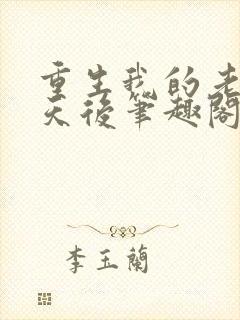 重生我的老
天後筆趣閣
李玉蘭